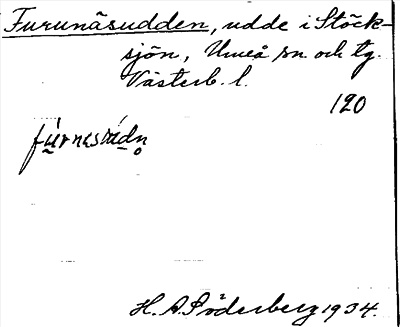 Furunäsudden, udde i Stöck-
sjön, Umeå sn. och tg.
Västerb. l.
120
H. A. Söderberg 1934.